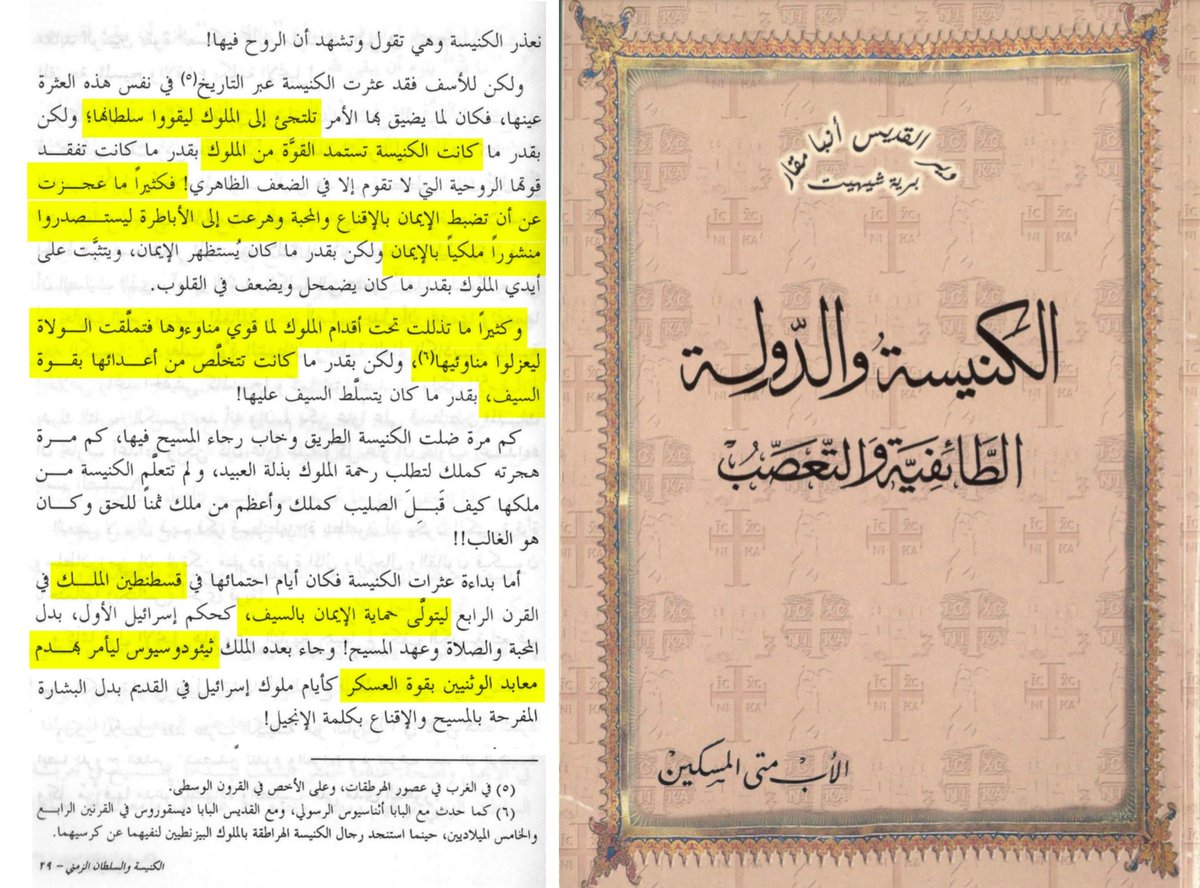 نعذر الكنيسة وهي تقول وتشهد أن الروح فيها!
ولكن للأسف فقد عثرت الكنيسة عبر التاريخ(٥) في نفس هذه العثرة
عينها، فكان لما يضيق بها الأمر تلتجئ إلى الملوك ليقووا سلطانها؛ ولكن
بقدر ما كانت الكنيسة تستمد القوَّة من الملوك بقدر ما كانت تفتقد
قوتها الروحية التي لا تقوم إلا في الضعف الظاهري! فكثيراً ما عجزت
عن أن تضبط الإيمان بالإقناع والمحبة وهرعت إلى الأباطرة ليستصدروا
منشوراً ملكياً بالإيمان ولكن بقدر ما كان يُستظهر الإيمان، ويتثبَّت على
أيدي الملوك بقدر ما كان يضمحل ويضعف في القلوب.
وكثيراً ما تذللت تحت أقدام الملوك لما قوي مناوءوها فتملَّقت الولاة
ليعزلوا مناوئيها(٦)، ولكن بقدر ما كانت تتخلَّص من أعدائها بقوة
السيف، بقدر ما كان يتسلَّط السيف عليها!
كم مرة ضلت الكنيسة الطريق وخاب رجاء المسيح فيها، كم مرة
هجرته كملك لتطلب رحمة الملوك بذلة العبيد، ولم تتعلَّم الكنيسة من
ملكها كيف قَبِلَ الصليب كملك وأعظم من ملك ثمناً للحق وكان
هو الغالب!!
أما بداءة عثرات الكنيسة فكان أيام احتمائها في قسطنطين الملك في
القرن الرابع ليتولَّى حماية الإيمان بالسيف، كحكم إسرائيل الأول، بدل
المحبة والصلاة وعهد المسيح! وجاء بعده الملك ثيئودوسيوس ليأمر بهدم
معابد الوثنيين بقوة العسكر كأيام ملوك إسرائيل في القديم بدل البشارة
المفرحة بالمسيح والإقناع بكلمة الإنجيل!
(٥) في الغرب في عصور الهرطقات، وعلى الأخص في القرون الوسطى.
(٦) كما حدث مع البابا أثناسيوس الرسولي، ومع القديس البابا ديسقوروس في القرنين الرابع
والخامس الميلاديين، حينما استنجد رجال الكنيسة الهراطقة بالملوك البيزنطيين لنفيهما عن كرسيهما.
الكنيسة والسلطان الزمني – ٢٩
دير القديس أنبا مقار
برية شيهيت
الكنيسة والدّولة
الطَّائفيَّة والتَّعصُّب
الأب متى المسكين